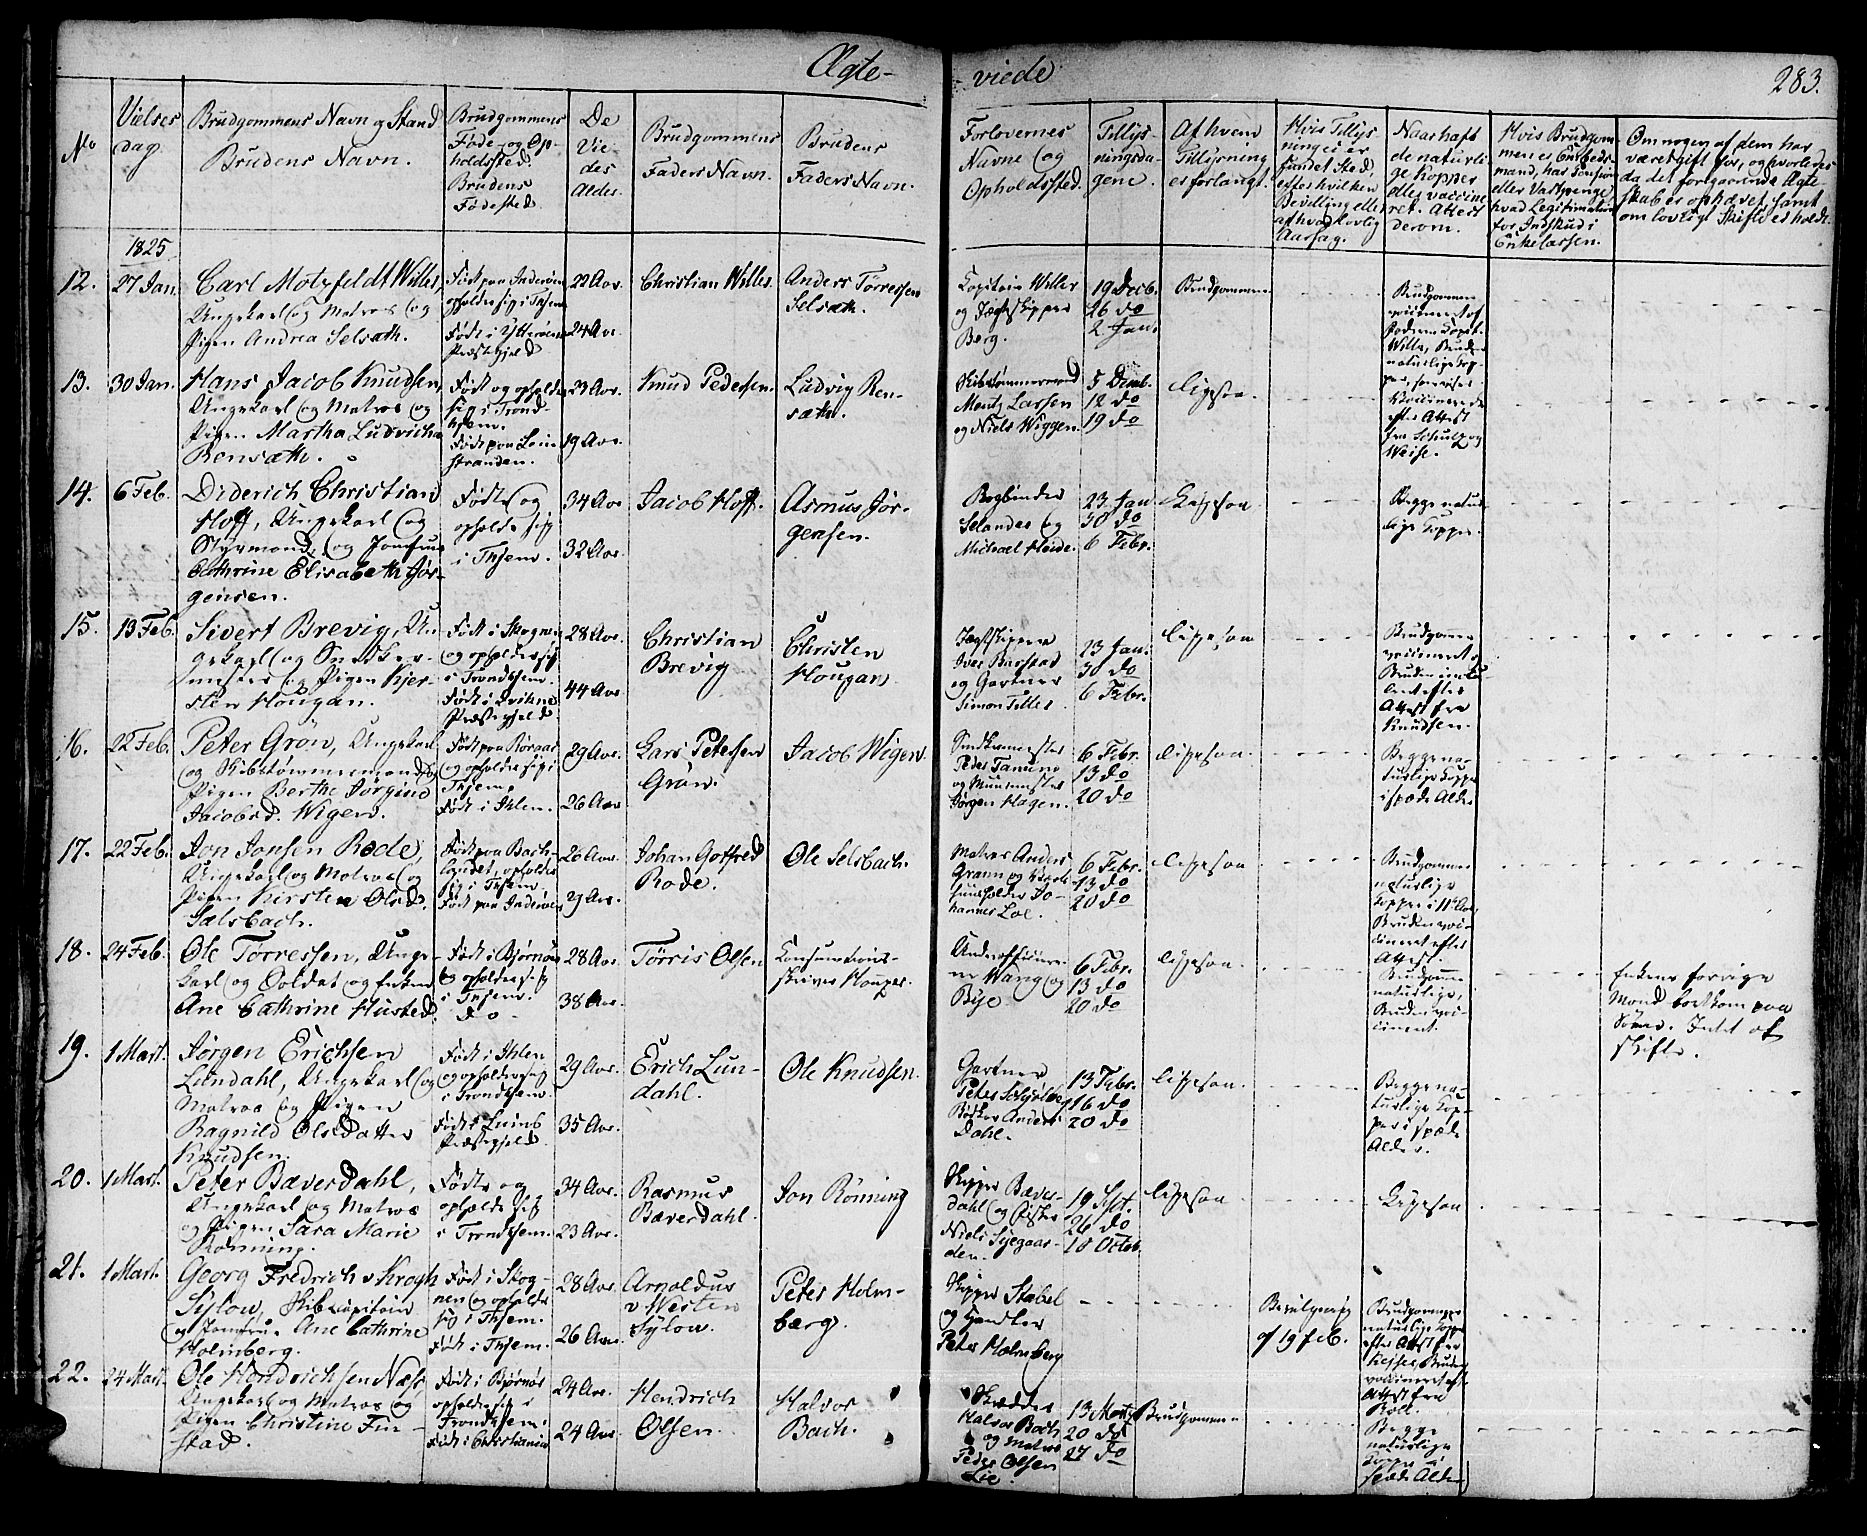 Ægte-
-viede
283.
No
Vielses
dag
Brudgommens Navn og Stand
Brudens Navn.
Brudgommens
Føde- og Op-
holdsted.
Brudens
Fødested
De
Vie-
des
Alder.
Brudgommens
Faders Navn.
Brudens
Faders Navn.
Forlovernes
Navne og
Opholdssted.
Tillys-
ningsda-
gene.
Af hvem
Tillysning
er forlangt.
Hvis Tillys
ning ei er
fundet Sted,
efter hvilken
Bevilling eller
af hvad lovlig
Aarsag.
Naar haft
de naturli-
ge Kopper
eller vaccine
ret. Attest
derom.
Hvis Brudgom
men er Embeds-
mand, har Pension
eller Vartpenge,
hvad Legitimation
for Indskud i
Enkekassen.
Om nogen af dem har
været gift før, og hvorledes
da det foregaaende Ægte
skab er ophævet, samt
om lovligt Skifte er holdt.
1825
12.
27 Jan.
Carl Motzfeldt Wille,
Ungekarl og Matros og
Pigen Andrea Selsæth.
Født paa Inderøen
opholder sig i Thjem
Født i Ytterøens
Præstegjeld
22 Aar.
24 Aar.
Christian Wille.
Anders Tørressen
Selsæth.
Kapitain Wille
og Jægtskipper
Berg.
19 Decb.
26 do
2 Jan.
Brudgommen
Brudgommen
vaccineret af
Faderen Capit.
Wille, Bruden
naturlige Kop
13.
30 Jan.
Hans Jacob Knudsen,
Ungekarl og Matros og
Pigen Martha Ludvicha
Rensæth.
Født og opholder
sig i Trond-
hjem.
Født paa Lein
stranden.
23 Aar.
19 Aar.
Knud Pedersen.
Ludvig Ren-
sæth.
Skibstømmermand
Mentz Larsen
og Niels Wiggen.
5 Decmb.
12 do
19 do
ligesaa.
Vaccinerede
efter Attest
fra Schultz og
Weise.
14.
6 Feb.
Diderich Christian
Hoff, Ungekarl og
Styrmand, og Jomfrue
Cathrine Elisabeth Jør-
gensen.
Fødte og
opholde sig
i Thjem.
34 Aar
32 Aar.
Jacob Hoff.
Asmus Jør-
gensen.
Bogbinder
Selander og
Michael Heide.
23 Jan
30 do
6 Febr.
Ligesaa
Begge natur
lige Kopper.
15.
13 Feb.
Sivert Brevig, Un-
gekarl og Snedker-
mester og Pigen Kjer-
sten Hougan.
Født i Skognen
og opholder sig
i Trondhjem.
Født i Qvikne
Præstegjeld
28 Aar.
44 Aar
Christian
Brevig
Christen
Hougan.
Jægtskipper
Iver Barstad
og Gartner
Simon Tiller.
23 Jan.
30 do
6 Febr.
ligesaa
Brudgommen
vaccineret og
Bruden
efter
Attest fra
Knudsen.
16.
22 Feb.
Peter Grøn, Ungekarl
og Skibstømmermand og
Pigen Berthe Jørgine
Jacobsd. Wigen.
Født paa Røraas
og opholder sig i
Thjem.
Født i Ihlen.
29 Aar.
26 Aar
Lars Petersen
Grøn.
Jacob Wigen.
Snedkermester
Peder Tanum
og Muurmester
Jørgen Hagen.
6 Febr.
13 do
20 do
ligesaa.
Begge na-
turlige Kopper
i spæde Alder
17.
22 Feb.
Jon Jonsen Rode,
Ungekarl og Matros og
Pigen Kirsten Olsd.
Sælsbach.
Født paa Bach-
landet, opholder
sig i Thjem.
Født paa Inderøen
26 Aar.
29 Aar.
Johan Gotfred
Rode.
Ole Selsbach.
Matros Anders
Grann og
huusholder Jo-
hannes Loe.
6 Febr.
13 do
20 do
ligesaa
Brudgommen
naturlige
Kopper i 11te Aar,
Bruden vac-
cineret efter
Attest.
18.
24 Feb.
Ole Tørressen, Unge-
karl og Soldat og Enken
Ane Cathrine Husted.
Født i Bjørnør
og opholder sig
i Thjem.
do
28 Aar.
38 Aar.
Tørris Olsen
Konsumtions-
skriver Houper.
Underofficerer-
ne Wang og
Bye.
6 Febr.
13 do
20 do
ligesaa
Brudgommen
naturlige,
Bruden vac-
cineret.
Enkens forrige
Mand bortkom paa
Søen. Intet af
skifte.
19.
1 Mart.
Jørgen Erichsen
Lundahl, Ungekarl og
Matros og Pigen
Ragnild Olsdatter
Knudsen.
Født i Ihlen
og opholder sig
i Trondhjem.
Født i
Præstegjeld.
29 Aar.
35 Aar.
Erich Lun-
dahl.
Ole Knudsen.
Gartner
Peter Solsjøberg
Bødker Anders
Dahl.
13 Febr.
16 do
20 do
ligesaa.
Begge na-
turlige Kop-
per i spæde
Alder.
20.
1 Mart.
Peter Bæverdahl,
Ungekarl og Matros
og Pigen Sara Marie
Rønning.
Fødte og
opholde sig
i Trondhjem.
34 Aar.
23 Aar.
Rasmus
Bæverdahl.
Jon Rønning
Skipper Bæver-
dahl og Fisker
Niels Siegaar-
den.
19 Sept.
26 do
10 Octob.
ligesaa
Ligesaa
21.
1 Mart.
Georg Fredrich v Krogh
Sylow, Skibscapitain
og Jomfru. Ane Cathrine
Holmberg.
Født i Skog-
nen og opholder
sig i Thjem.
Født i Thjem.
28 Aar.
26 Aar.
Arnoldus
v Westen
Sylow.
Peter Holm-
berg.
Skipper Stabel
og Handler
Peter Holmberg
Bevilgning
af 19 Feb.
Brudgommen
naturlige Kopper
efter Attest fra
Bruden
vaccineret efter
Attest fra
Boll.
22.
24 Mart.
Ole Hendrichsen Næss
Ungekarl og Matros og
Pigen Christine Fin-
stad.
Født i Bjørnør
opholder sig i
Trondhjem.
Født i Christiania
24 Aar.
24 Aar.
Hendrich
Olsen.
Halvor
Bach.
Skrædder
Halvor Bach
og Matros
Peder Olsen
Lie.
13 Martz
20 do
27 do
Brudgommen
Begge
naturlige
Kopper i
spæde Alder